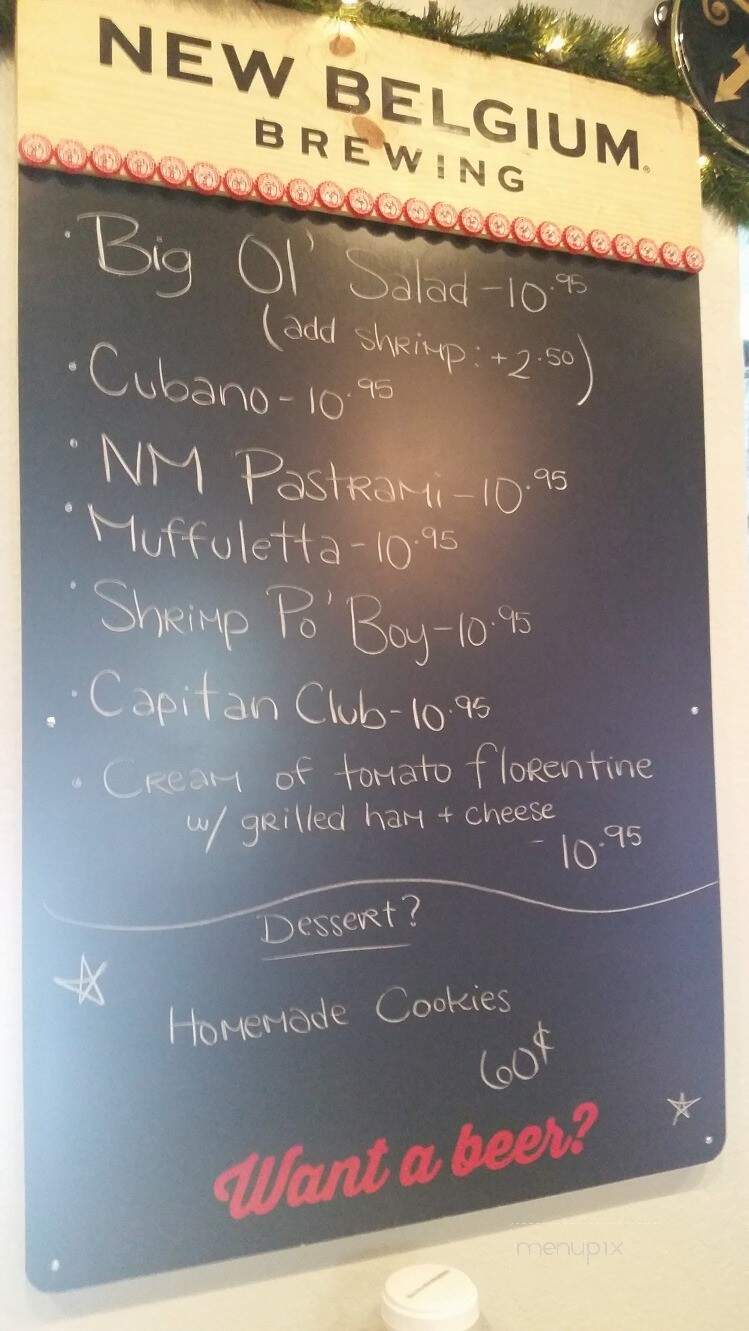 NEW BELGIUM®
BREWING
· Big Ol' Salad - 10.95
(add shrimp: +2.50)
· Cubano - 10.95
· NM Pastrami - 10.95
· Muffuletta - 10.95
· Shrimp Po' Boy - 10.95
· Capitan Club - 10.95
· Cream of tomato florentine
w/ grilled ham + cheese
- 10.95
Dessert?
Homemade Cookies
60¢
Want a beer?
menupix